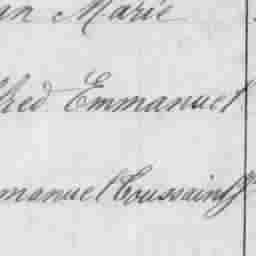 an Marie
fred Emmanuel
mmanuel Toussaint